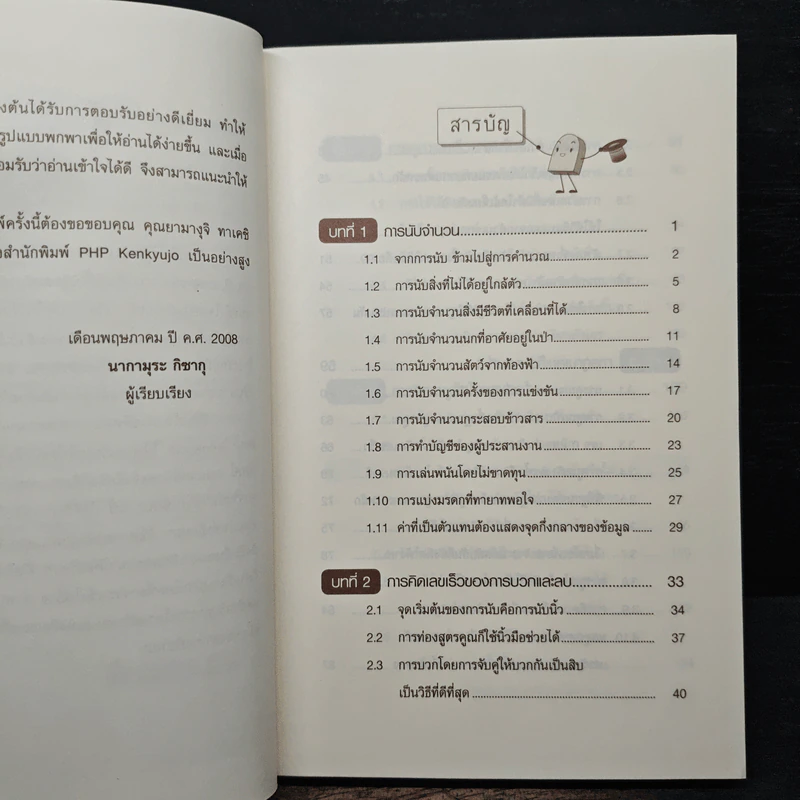 งต้นได้รับการตอบรับอย่างดีเยี่ยม ทำให้
รูปแบบพกพาเพื่อให้อ่านได้ง่ายขึ้น และเมื่อ
อมรับว่าอ่านเข้าใจได้ดี จึงสามารถแนะนำให้
พ์ครั้งนี้ต้องขอขอบคุณ คุณยามางุจิ ทาเคชิ
งสำนักพิมพ์ PHP Kenkyujo เป็นอย่างสูง
เดือนพฤษภาคม ปี ค.ศ. 2008
นากามุระ กิซากุ
ผู้เรียบเรียง
สารบัญ
บทที่ 1 การนับจำนวน 1
1.1 จากการนับ ข้ามไปสู่การคำนวณ 2
1.2 การนับสิ่งที่ไม่ได้อยู่ใกล้ตัว 5
1.3 การนับจำนวนสิ่งมีชีวิตที่เคลื่อนที่ได้ 8
1.4 การนับจำนวนนกที่อาศัยอยู่ในป่า 11
1.5 การนับจำนวนสัตว์จากท้องฟ้า 14
1.6 การนับจำนวนครั้งของการแข่งขัน 17
1.7 การนับจำนวนกระสอบข้าวสาร 20
1.8 การทำบัญชีของผู้ประสานงาน 23
1.9 การเล่นพนันโดยไม่ขาดทุน 25
1.10 การแบ่งมรดกที่ทายาทพอใจ 27
1.11 ค่าที่เป็นตัวแทนต้องแสดงจุดกึ่งกลางของข้อมูล 29
บทที่ 2 การคิดเลขเร็วของการบวกและลบ 33
2.1 จุดเริ่มต้นของการนับคือการนับนิ้ว 34
2.2 การท่องสูตรคูณก็ใช้นิ้วมือช่วยได้ 37
2.3 การบวกโดยการจับคู่ให้บวกกันเป็นสิบ
เป็นวิธีที่ดีที่สุด 40